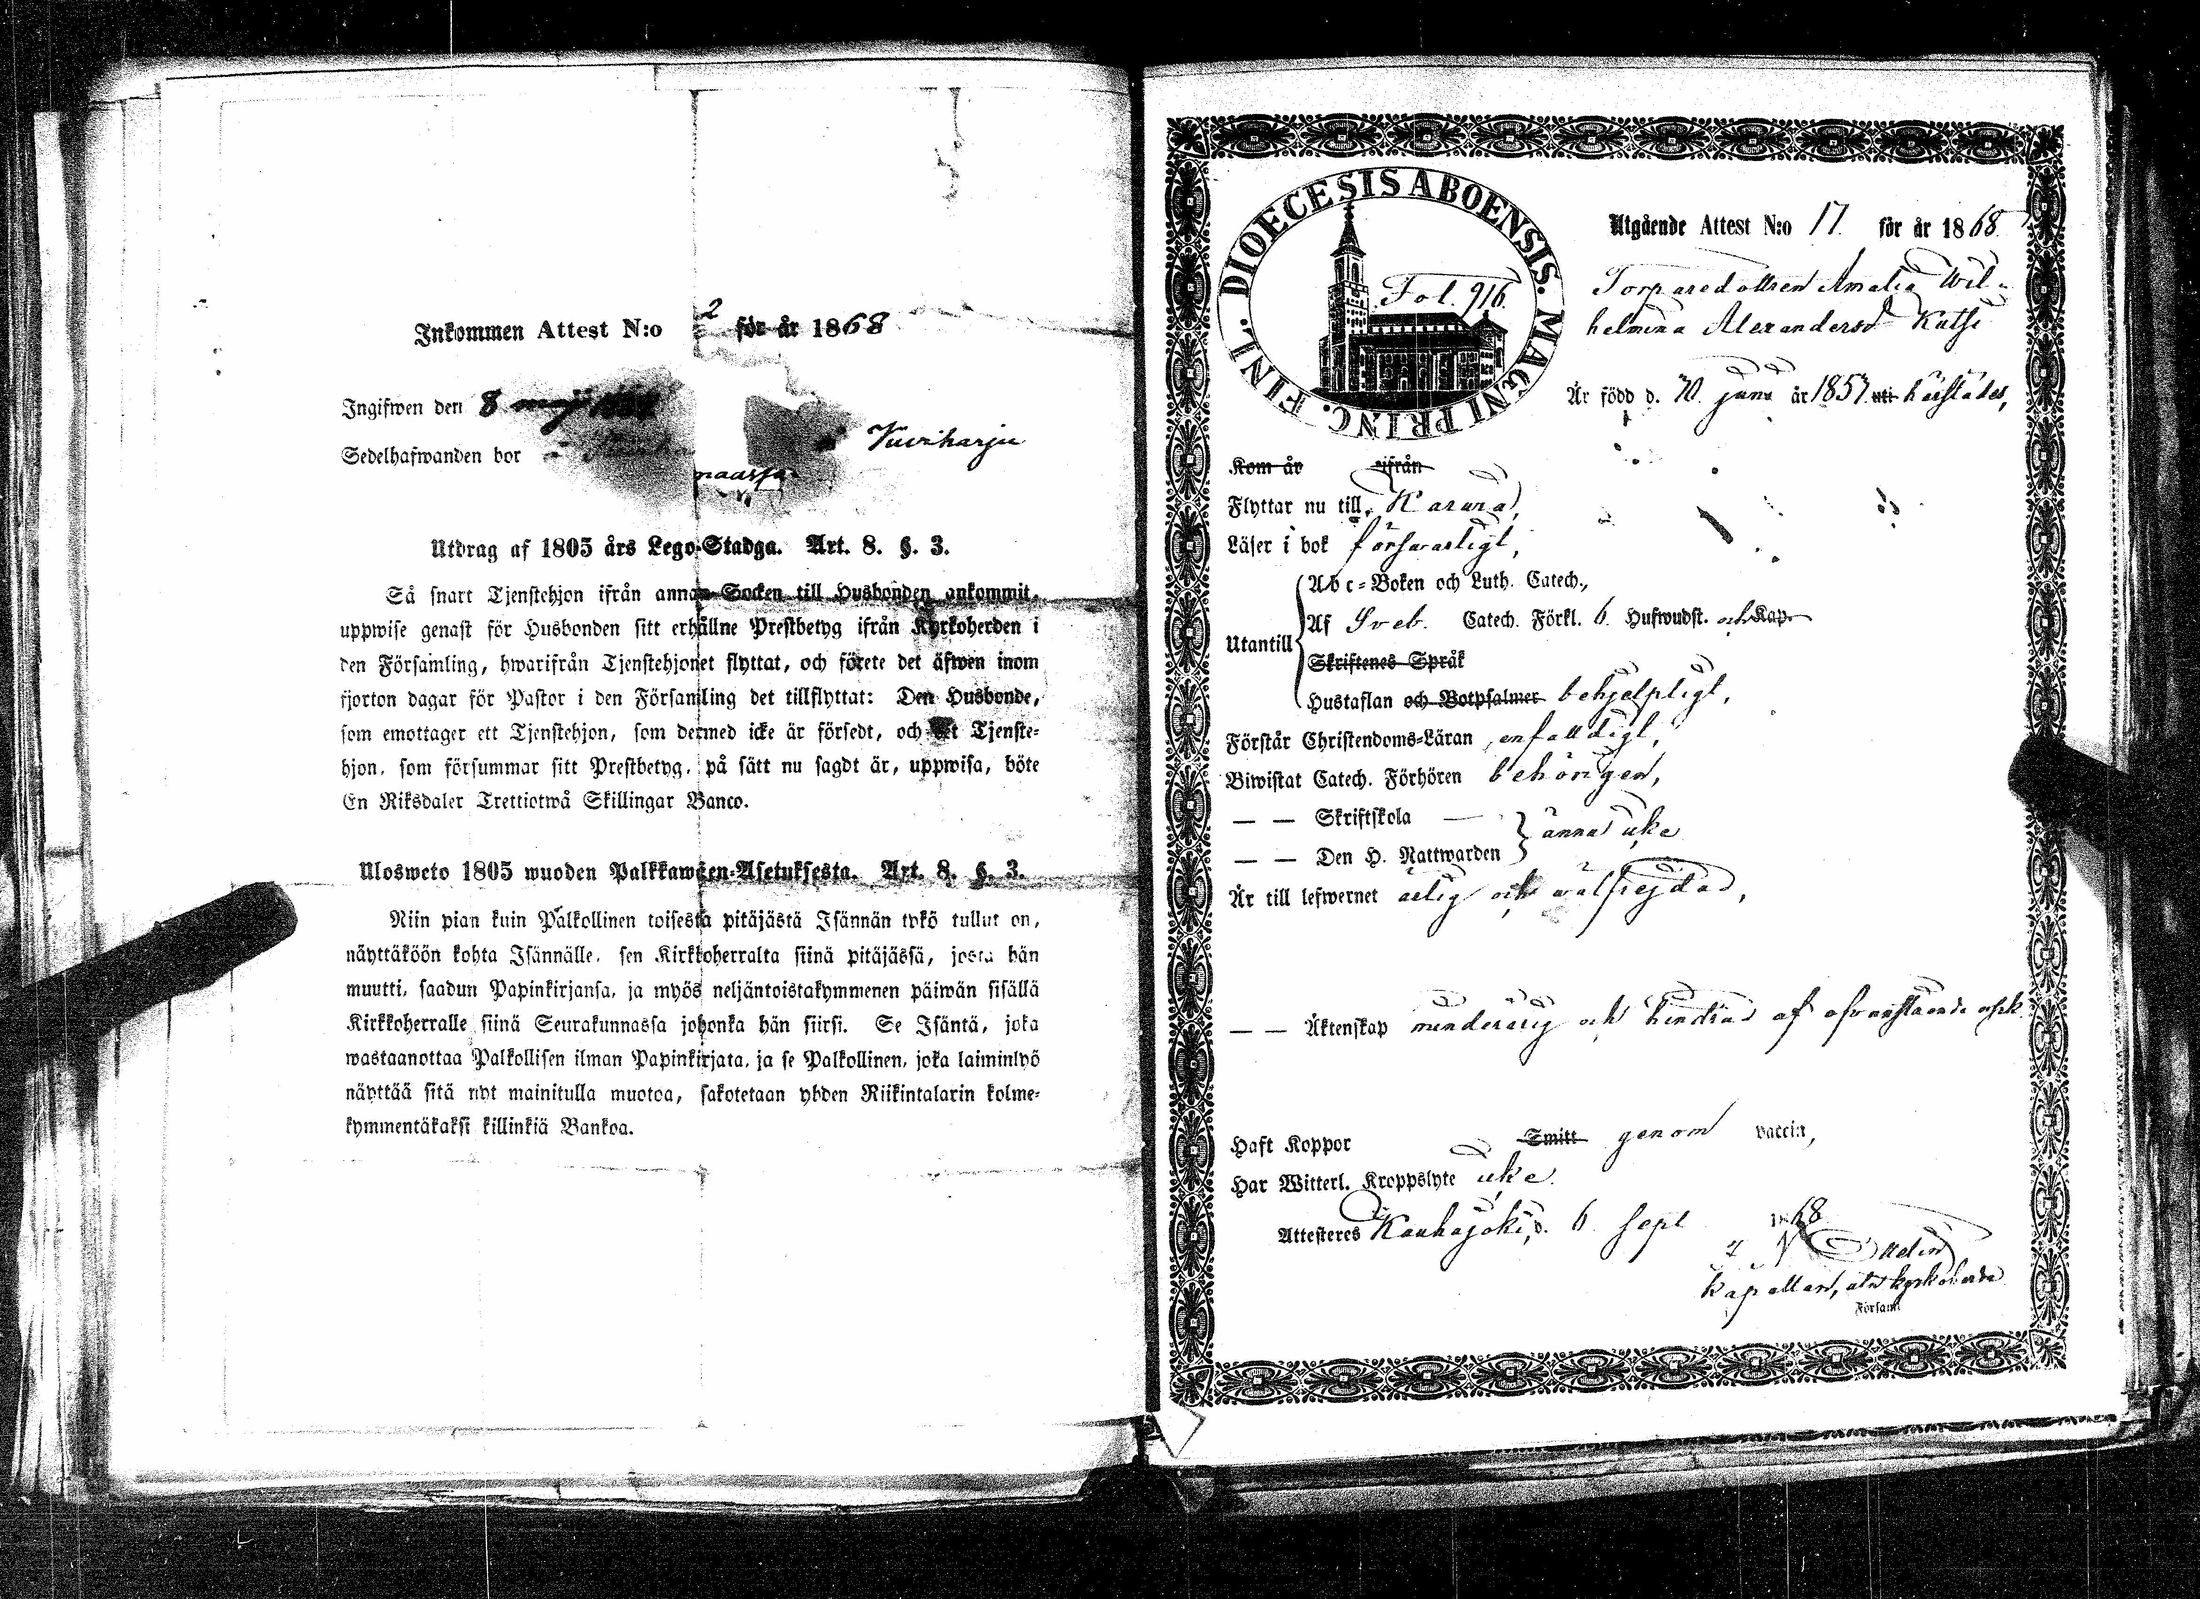 Inkommen Attest N:o 2 för år 1868
Ingifwen den 8 maj
Sedelhafwanden bor Vuoriharju
Utdrag af 1805 års Lego-Stadga. Art. 8. §. 3.
Så snart Tjenstehjon ifrån annan Socken till Husbonden ankommit,
uppwise genast för Husbonden sitt erhållne Prestbetyg ifrån Kyrkoherden i
den Församling, hwarifrån Tjenstehjonet flyttat, och förete det äfwen inom
fjorton dagar för Pastor i den Församling det tillflyttat: Den Husbonde,
som emottager ett Tjenstehjon, som dermed icke är försedt, och det Tjenste-
hjon, som försummar sitt Prestbetyg, på sätt nu sagdt är, uppwisa, böte
En Riksdaler Trettiotwå Skillingar Banco.
Ulosweto 1805 wuoden Palkkawäen-Asetuksesta. Art. 8. §. 3.
Niin pian kuin Palkollinen toisesta pitäjästä Isännän tykö tullut on,
näyttäköön kohta Isännälle, sen Kirkkoherralta siinä pitäjässä, josta hän
muutti, saadun Papinkirjansa, ja myös neljäntoistakymmenen päiwän sisällä
Kirkkoherralle siinä Seurakunnassa johonka hän siirsi. Se Isäntä, joka
wastaanottaa Palkollisen ilman Papinkirjata, ja se Palkollinen, joka laiminlyö
näyttää sitä nyt mainitulla muotoa, sakotetaan yhden Riikintalarin kolme-
kymmentäkaksi killinkiä Bankoa.
DIOECESIS ABOENSIS. MAGNI PRINC. FINL.
Fol. 916.
Utgående Attest N:o 17. för år 1868.
Torparedottren Amalia Wil-
helmina Alexandersd Katsi
Är född d. 20. juni år 1857. uti härstädes,
Kom år ifrån
Flyttar nu till, Karvia,
Läser i bok försvarligt,
Utantill
Abc-Boken och Luth. Catech.,
Af Sveb. Catech. Förkl. 6 Hufwudst. och Kap.
Skriftenes Språk
Hustaflan och Botpsalmer behjelpligt,
Förstår Christendoms-Läran enfaldigt,
Biwistat Catech. Förhören behörigen,
— — Skriftskola —
— — Den H. Nattwarden } ännu icke
Är till lefwernet ärlig och välfrejdad,
— — Äktenskap minderårig och hindrad af ofvanstående orsak
Haft Koppor Smitt genom vaccin,
Har Witterl. Kroppslyte icke.
Attesteres Kauhajoki, d. 6 sept 1868
Kapellan,
Församl.